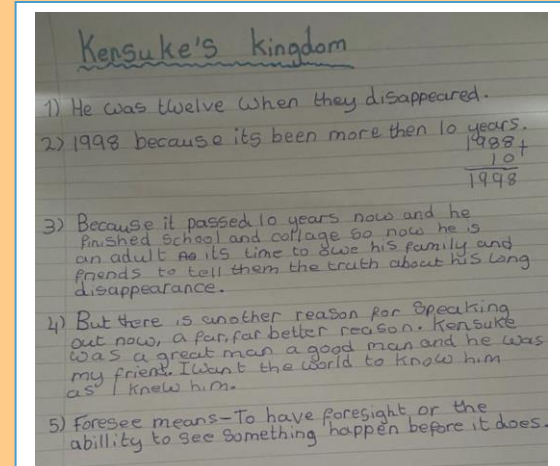 Kensuke's kingdom
1) He was twelve when they disappeared.
2) 1998 because its been more then 10 years.
1988+
10
1998
3) Because it passed 10 years now and he
finished school and collage so now he is
an adult As its time to owe his family and
friends to tell them the truth about his long
disappearance.
4) But there is another reason for speaking
out now, a far, far better reason. Kensuke
was a great man a good man and he was
my friend. I want the world to know him
as I knew him.
5) Foresee means-To have foresight, or the
abillity to see something happen before it does.